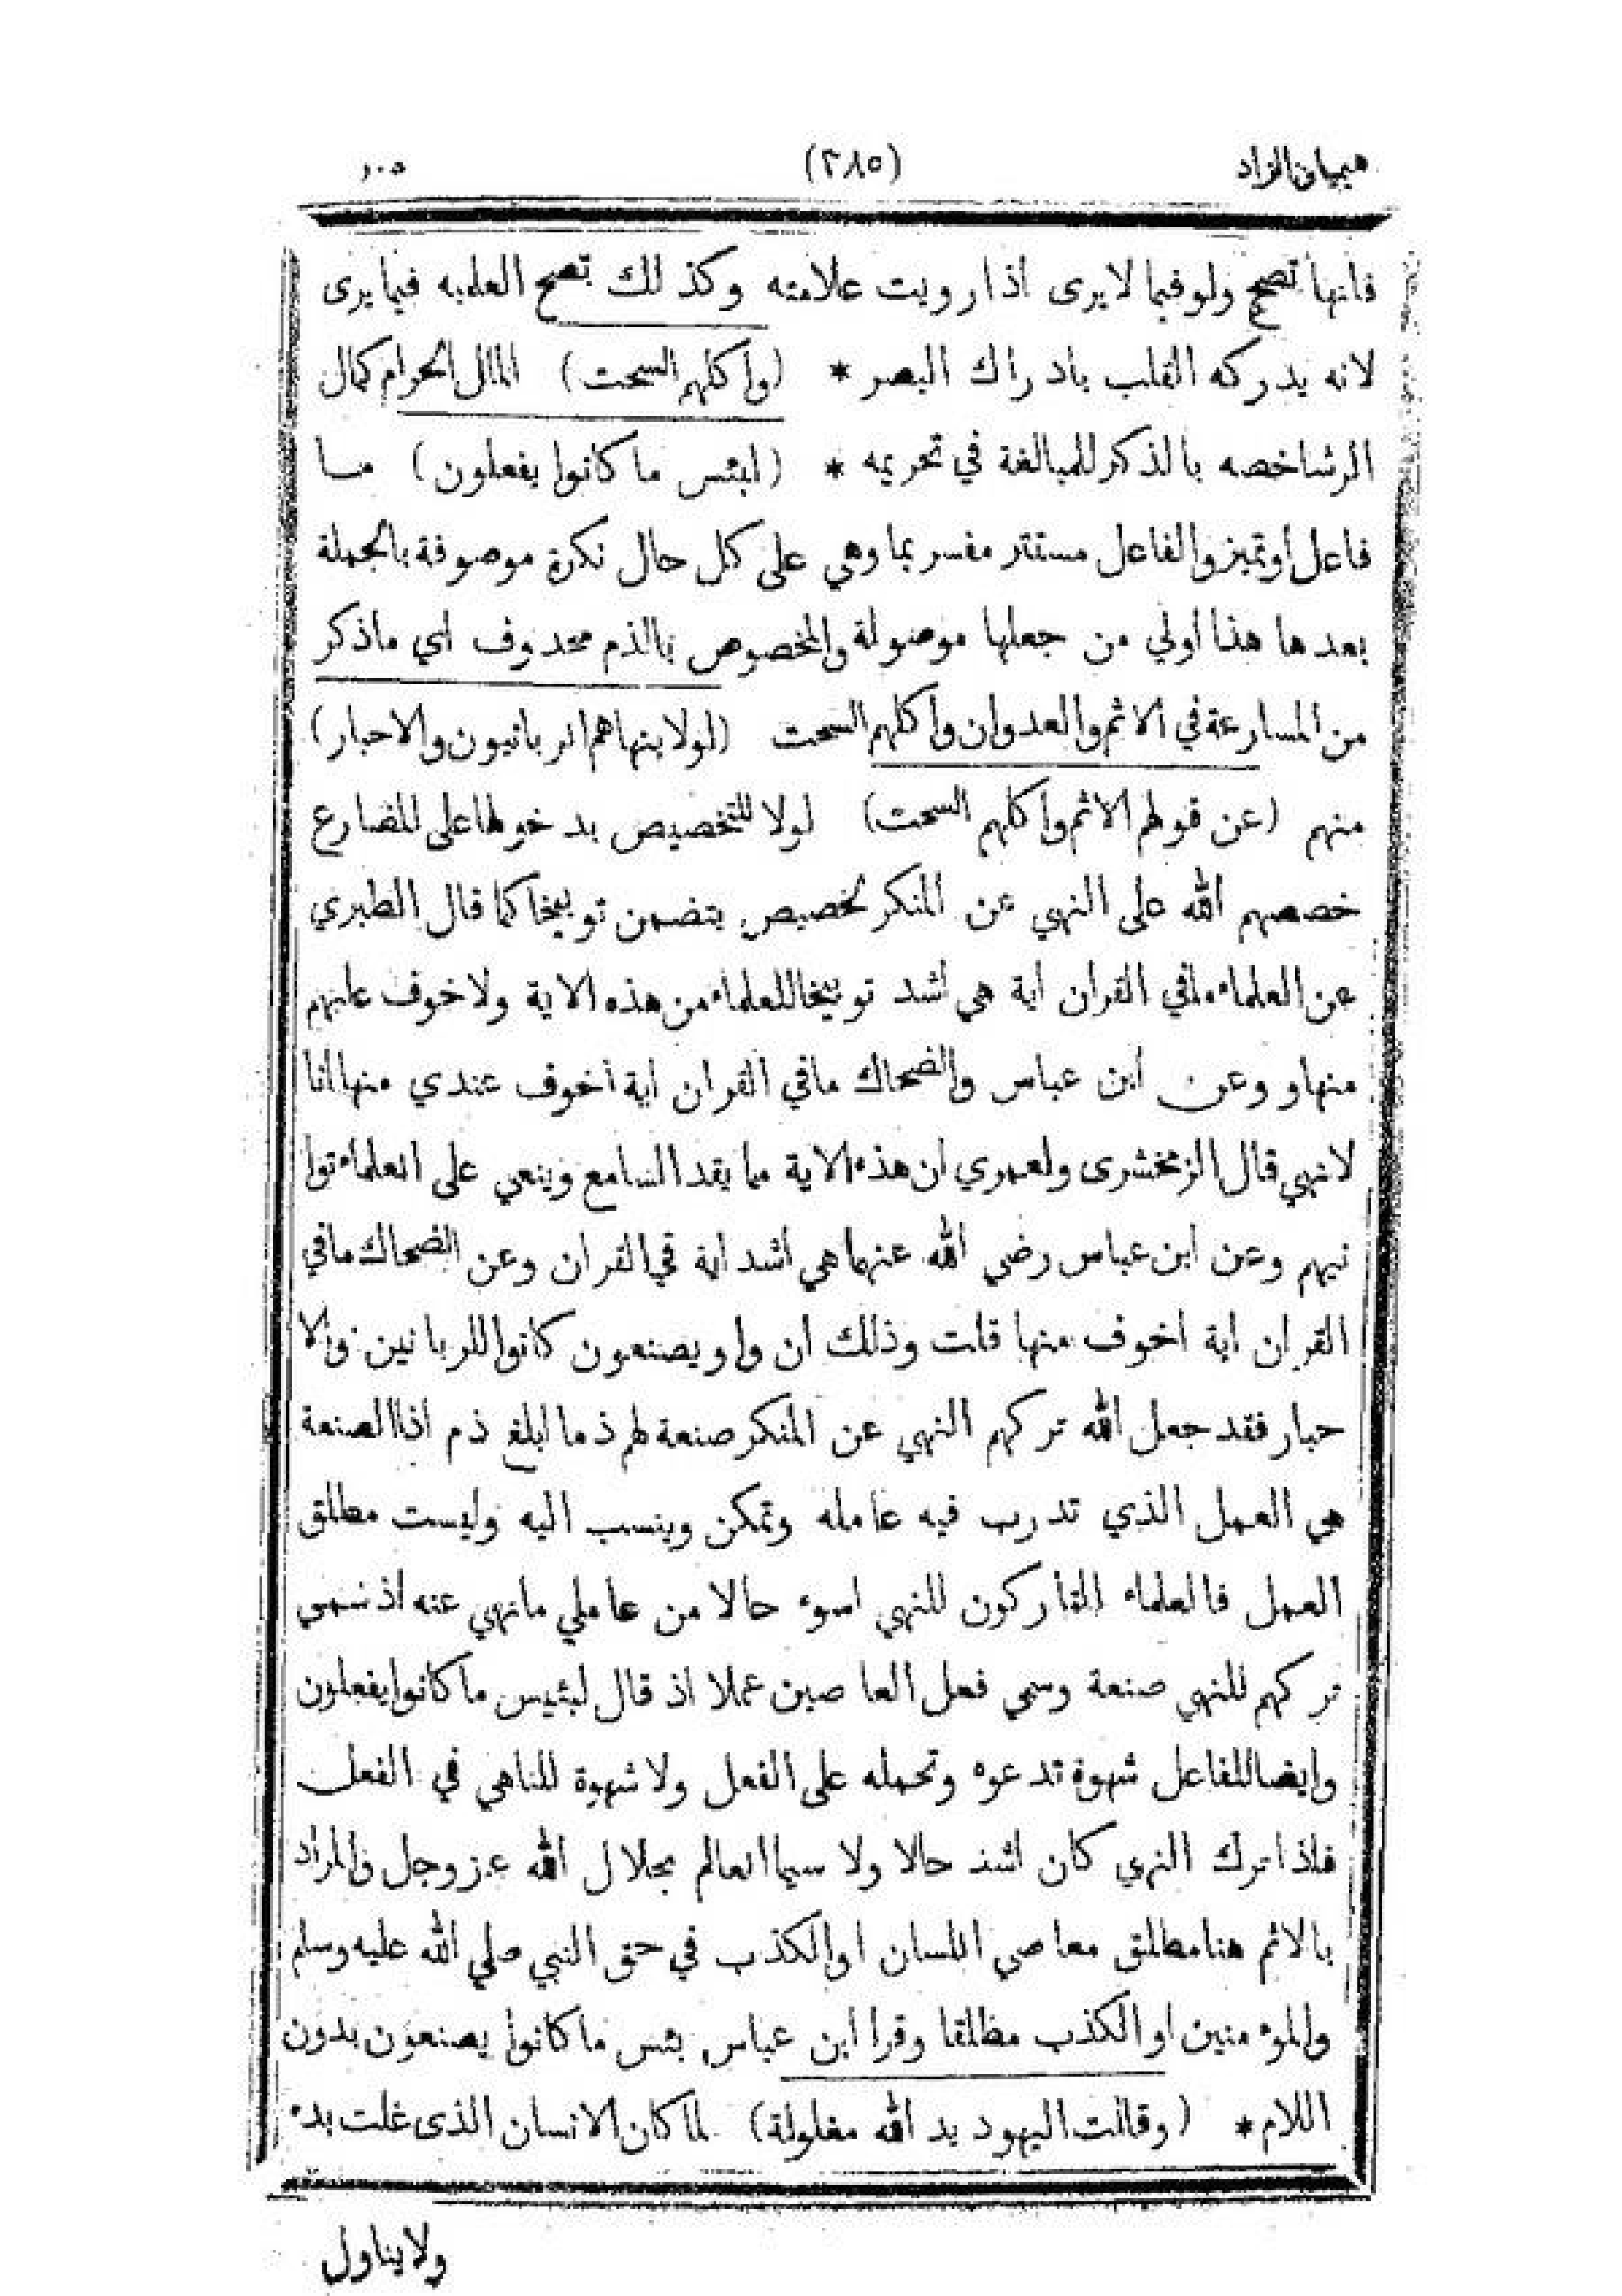 هيميان الزاد (٢٨٥) ج٥
فانها تصح ولو فيما لا يرى اذا رويت علامته وكذلك تصح العلمية فيما يرى
لانه يدركه القلب بادراك البصر * (واكلهم السحت) المال الحرام كمال
الرشاخصه بالذكر للمبالغة في تحريمه * (لبئس ما كانوا يفعلون) مـا
فاعل او تميز والفاعل مستتر مفسر بما وهي على كل حال نكرة موصوفة بالجملة
بعدها هذا أولي من جعلها موصولة والمخصوص بالذم محدوف اي ماذكر
من المسارعة في الاثم والعدوان واكلهم السحت (لولا ينهاهم الربانيون والاحبار)
منهم (عن قولهم الاثم واكلهم السحت) لولا للتخصيص بدخولها على المضارع
خصصهم الله على النهي عن المنكر تخصيص يتضمن توبيخا كما قال الطبري
عن العلماء مافي القران اية هي اشد توبيخا للعلماء من هذه الاية ولا خوف عليهم
منها و وعن ابن عباس والضحاك مافي القران اية أخوف عندي منها انا
لا ننهي قال الزمخشرى ولعمري ان هذه الاية مما يقد السامع وينعي على العلماء توا
نيهم وعن ابن عباس رضي الله عنهما هي اشد اية في القران وعن الضحاك مافي
القران اية اخوف منها قلت وذلك ان واو يصنعون كانوا للربانين والا
حبار فقد جعل الله تركهم النهي عن المنكر صنعة لهم ذما ابلغ ذم اذا الصنعة
هي العمل الذي تدرب فيه عامله وتمكن وينسب اليه وليست مطلق
العمل فالعلماء التاركون للنهي اسوء حالا من عاملي مانهي عنه اذ سمى
تركهم للنهي صنعة وسمي فعل العاصين عملا اذ قال لبئيس ما كانوا يفعلون
وايضا للفاعل شهوة تدعوه وتحمله على الفعل ولا شهوة للناهي في الفعل
فاذا ترك النهي كان اشد حالا ولا سيما العالم بجلال الله عز وجل والمراد
بالاثم هنا مطلق معاصي اللسان او الكذب في حق النبي صلي الله عليه وسلم
والموء منين او الكذب مطلقا وقرا ابن عباس بئس ما كانوا يصنعون بدون
اللام * (وقالت اليهود يد الله مغلولة) لما كان الانسان الذى غلت يده
ولا يناول